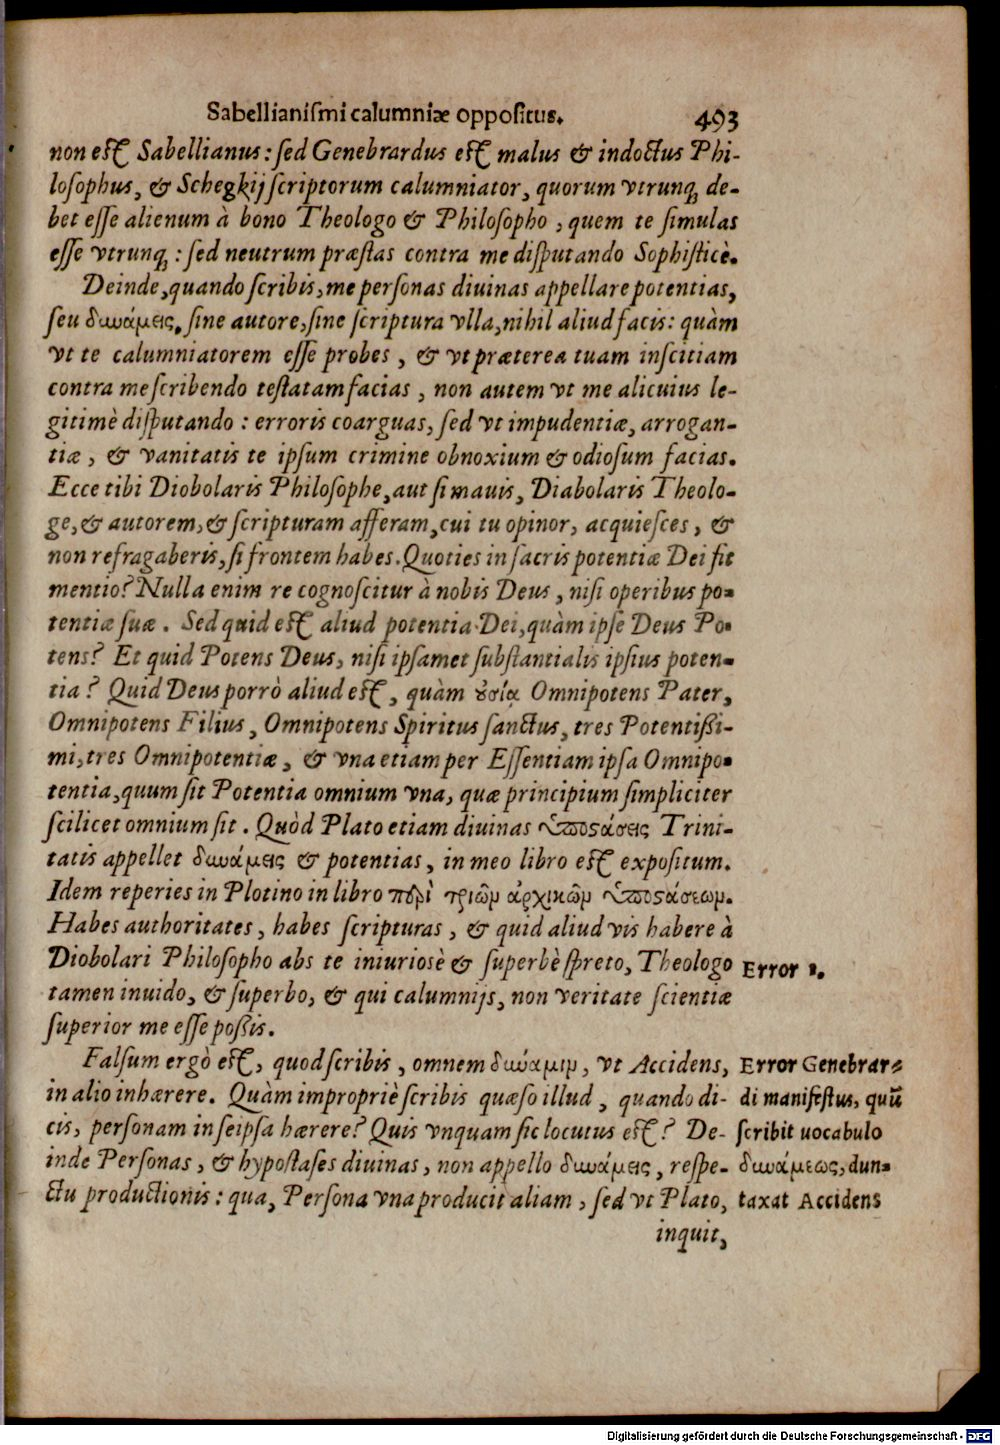 Sabellianiſmi calumniæ oppoſitus. 493
non eſt Sabellianus: ſed Genebrardus eſt malus & indoctus Phi-
loſophus, & Schegkij ſcriptorum calumniator, quorum vtrunq; de-
bet eſſe alienum à bono Theologo & Philoſopho, quem te ſimulas
eſſe vtrunq;: ſed neutrum præſtas contra me diſputando Sophiſticè.
Deinde, quando ſcribis, me perſonas diuinas appellare potentias,
ſeu δυνάμεις, ſine autore, ſine ſcriptura vlla, nihil aliud facis: quàm
vt te calumniatorem eſſe probes, & vt præterea tuam inſcitiam
contra me ſcribendo teſtatam facias, non autem vt me alicuius le-
gitimè diſputando: erroris coarguas, ſed vt impudentiæ, arrogan-
tiæ, & vanitatis te ipſum crimine obnoxium & odioſum facias.
Ecce tibi Diobolaris Philoſophe, aut ſi mauis, Diabolaris Theolo-
ge, & autorem, & ſcripturam afferam, cui tu opinor, acquieſces, &
non refragaberis, ſi frontem habes. Quoties in ſacris potentiæ Dei fit
mentio? Nulla enim re cognoſcitur à nobis Deus, niſi operibus po-
tentiæ ſuæ. Sed quid eſt aliud potentia Dei, quàm ipſe Deus Po-
tens? Et quid Potens Deus, niſi ipſamet ſubſtantialis ipſius poten-
tia? Quid Deus porrò aliud eſt, quàm οὐσία Omnipotens Pater,
Omnipotens Filius, Omnipotens Spiritus ſanctus, tres Potentißi-
mi, tres Omnipotentiæ, & vna etiam per Eſſentiam ipſa Omnipo-
tentia, quum ſit Potentia omnium vna, quæ principium ſimpliciter
ſcilicet omnium ſit. Quòd Plato etiam diuinas ὑποστάσεις Trini-
tatis appellet δυνάμεις & potentias, in meo libro eſt expoſitum.
Idem reperies in Plotino in libro περὶ τριῶν ἀρχικῶν ὑποστάσεων.
Habes authoritates, habes ſcripturas, & quid aliud vis habere à
Diobolari Philoſopho abs te iniurioſè & ſuperbè ſpreto, Theologo
tamen inuido, & ſuperbo, & qui calumnijs, non veritate ſcientiæ
ſuperior me eſſe poßis.
Error 1.
Falſum ergò eſt, quod ſcribis, omnem δύναμιν, vt Accidens,
in alio inhærere. Quàm impropriè ſcribis quæſo illud, quando di-
cis, perſonam in ſeipſa hærere? Quis vnquam ſic locutus eſt? De-
inde Perſonas, & hypoſtaſes diuinas, non appello δυνάμεις, reſpe-
ctu productionis: qua, Perſona vna producit aliam, ſed vt Plato,
Error Genebrar-
di manifeſtus, quū
ſcribit uocabulo
δυνάμεως, dun-
taxat Accidens
inquit,
Digitalisierung gefördert durch die Deutsche Forschungsgemeinschaft - DFG